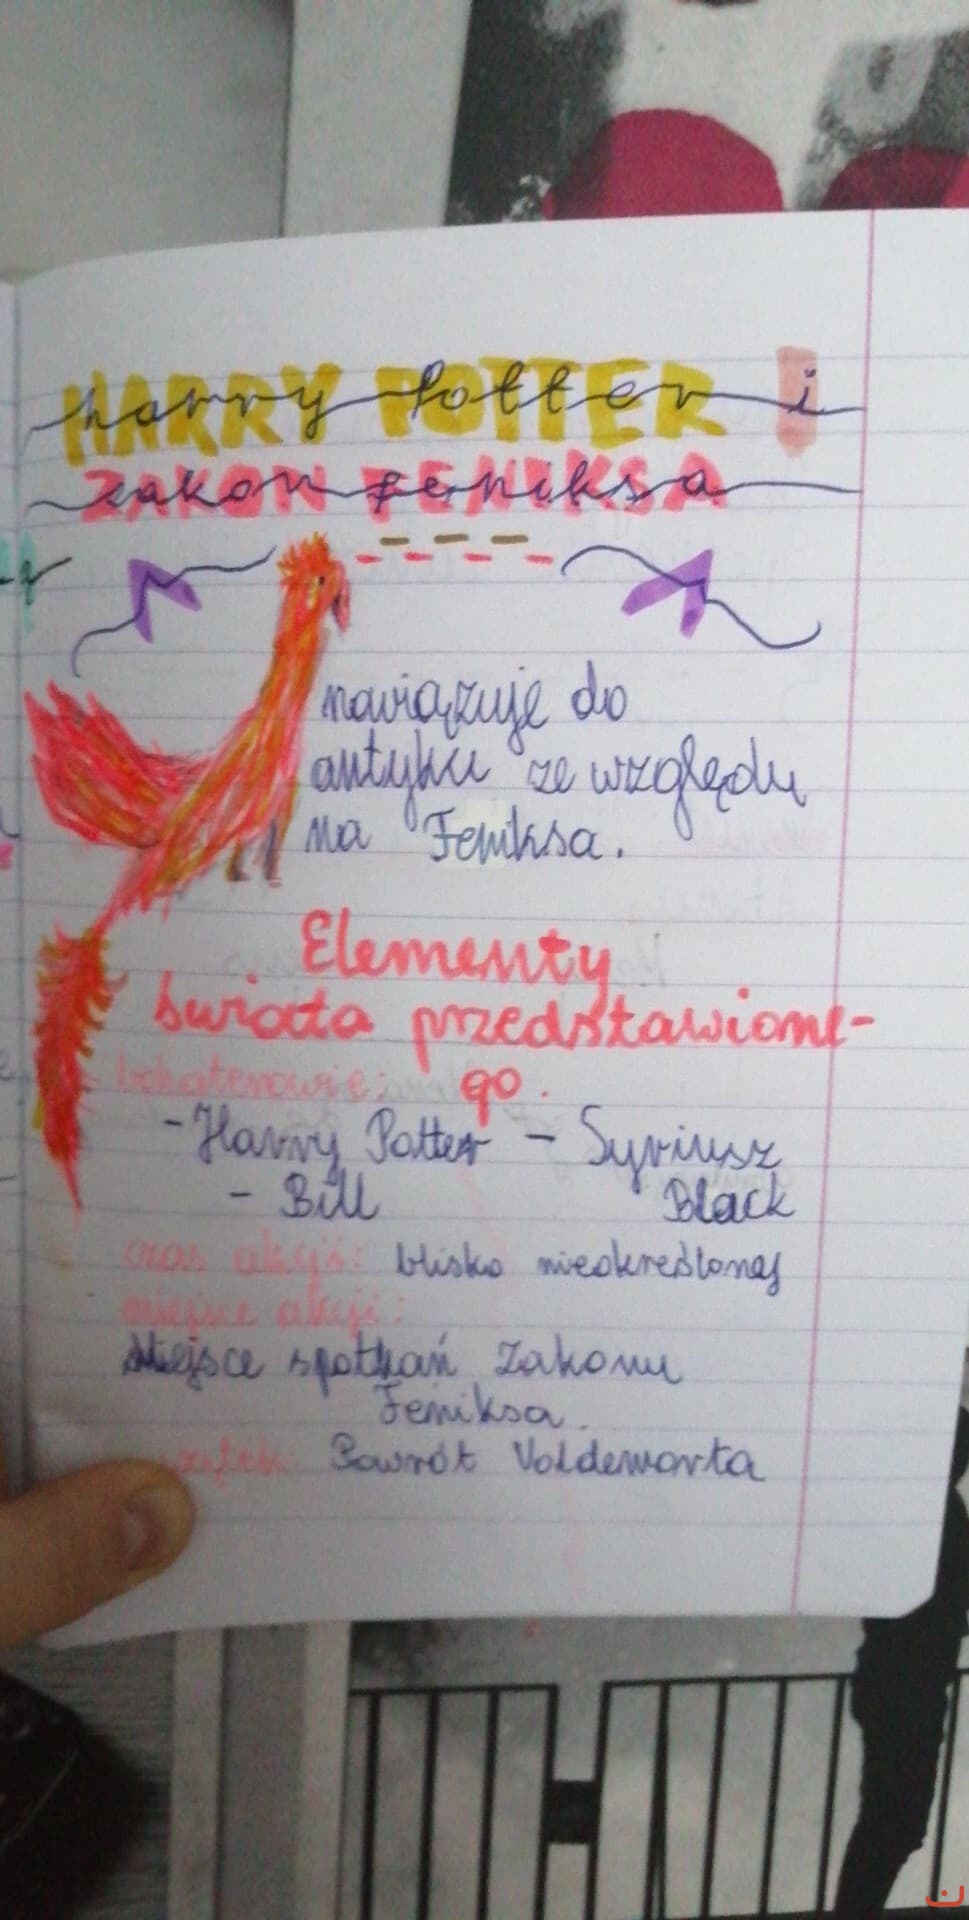 Harry Potter i
Zakon Feniksa
nawiązuje do
antyku ze względu
na Feniksa.
Elementy
świata przedstawione-
go.
bohaterowie:
- Harry Potter - Syriusz
- Bill Black
czas akcji: blisko nieokreślonej
miejsce akcji:
Miejsce spotkań Zakonu
Feniksa.
Powrót Voldemorta